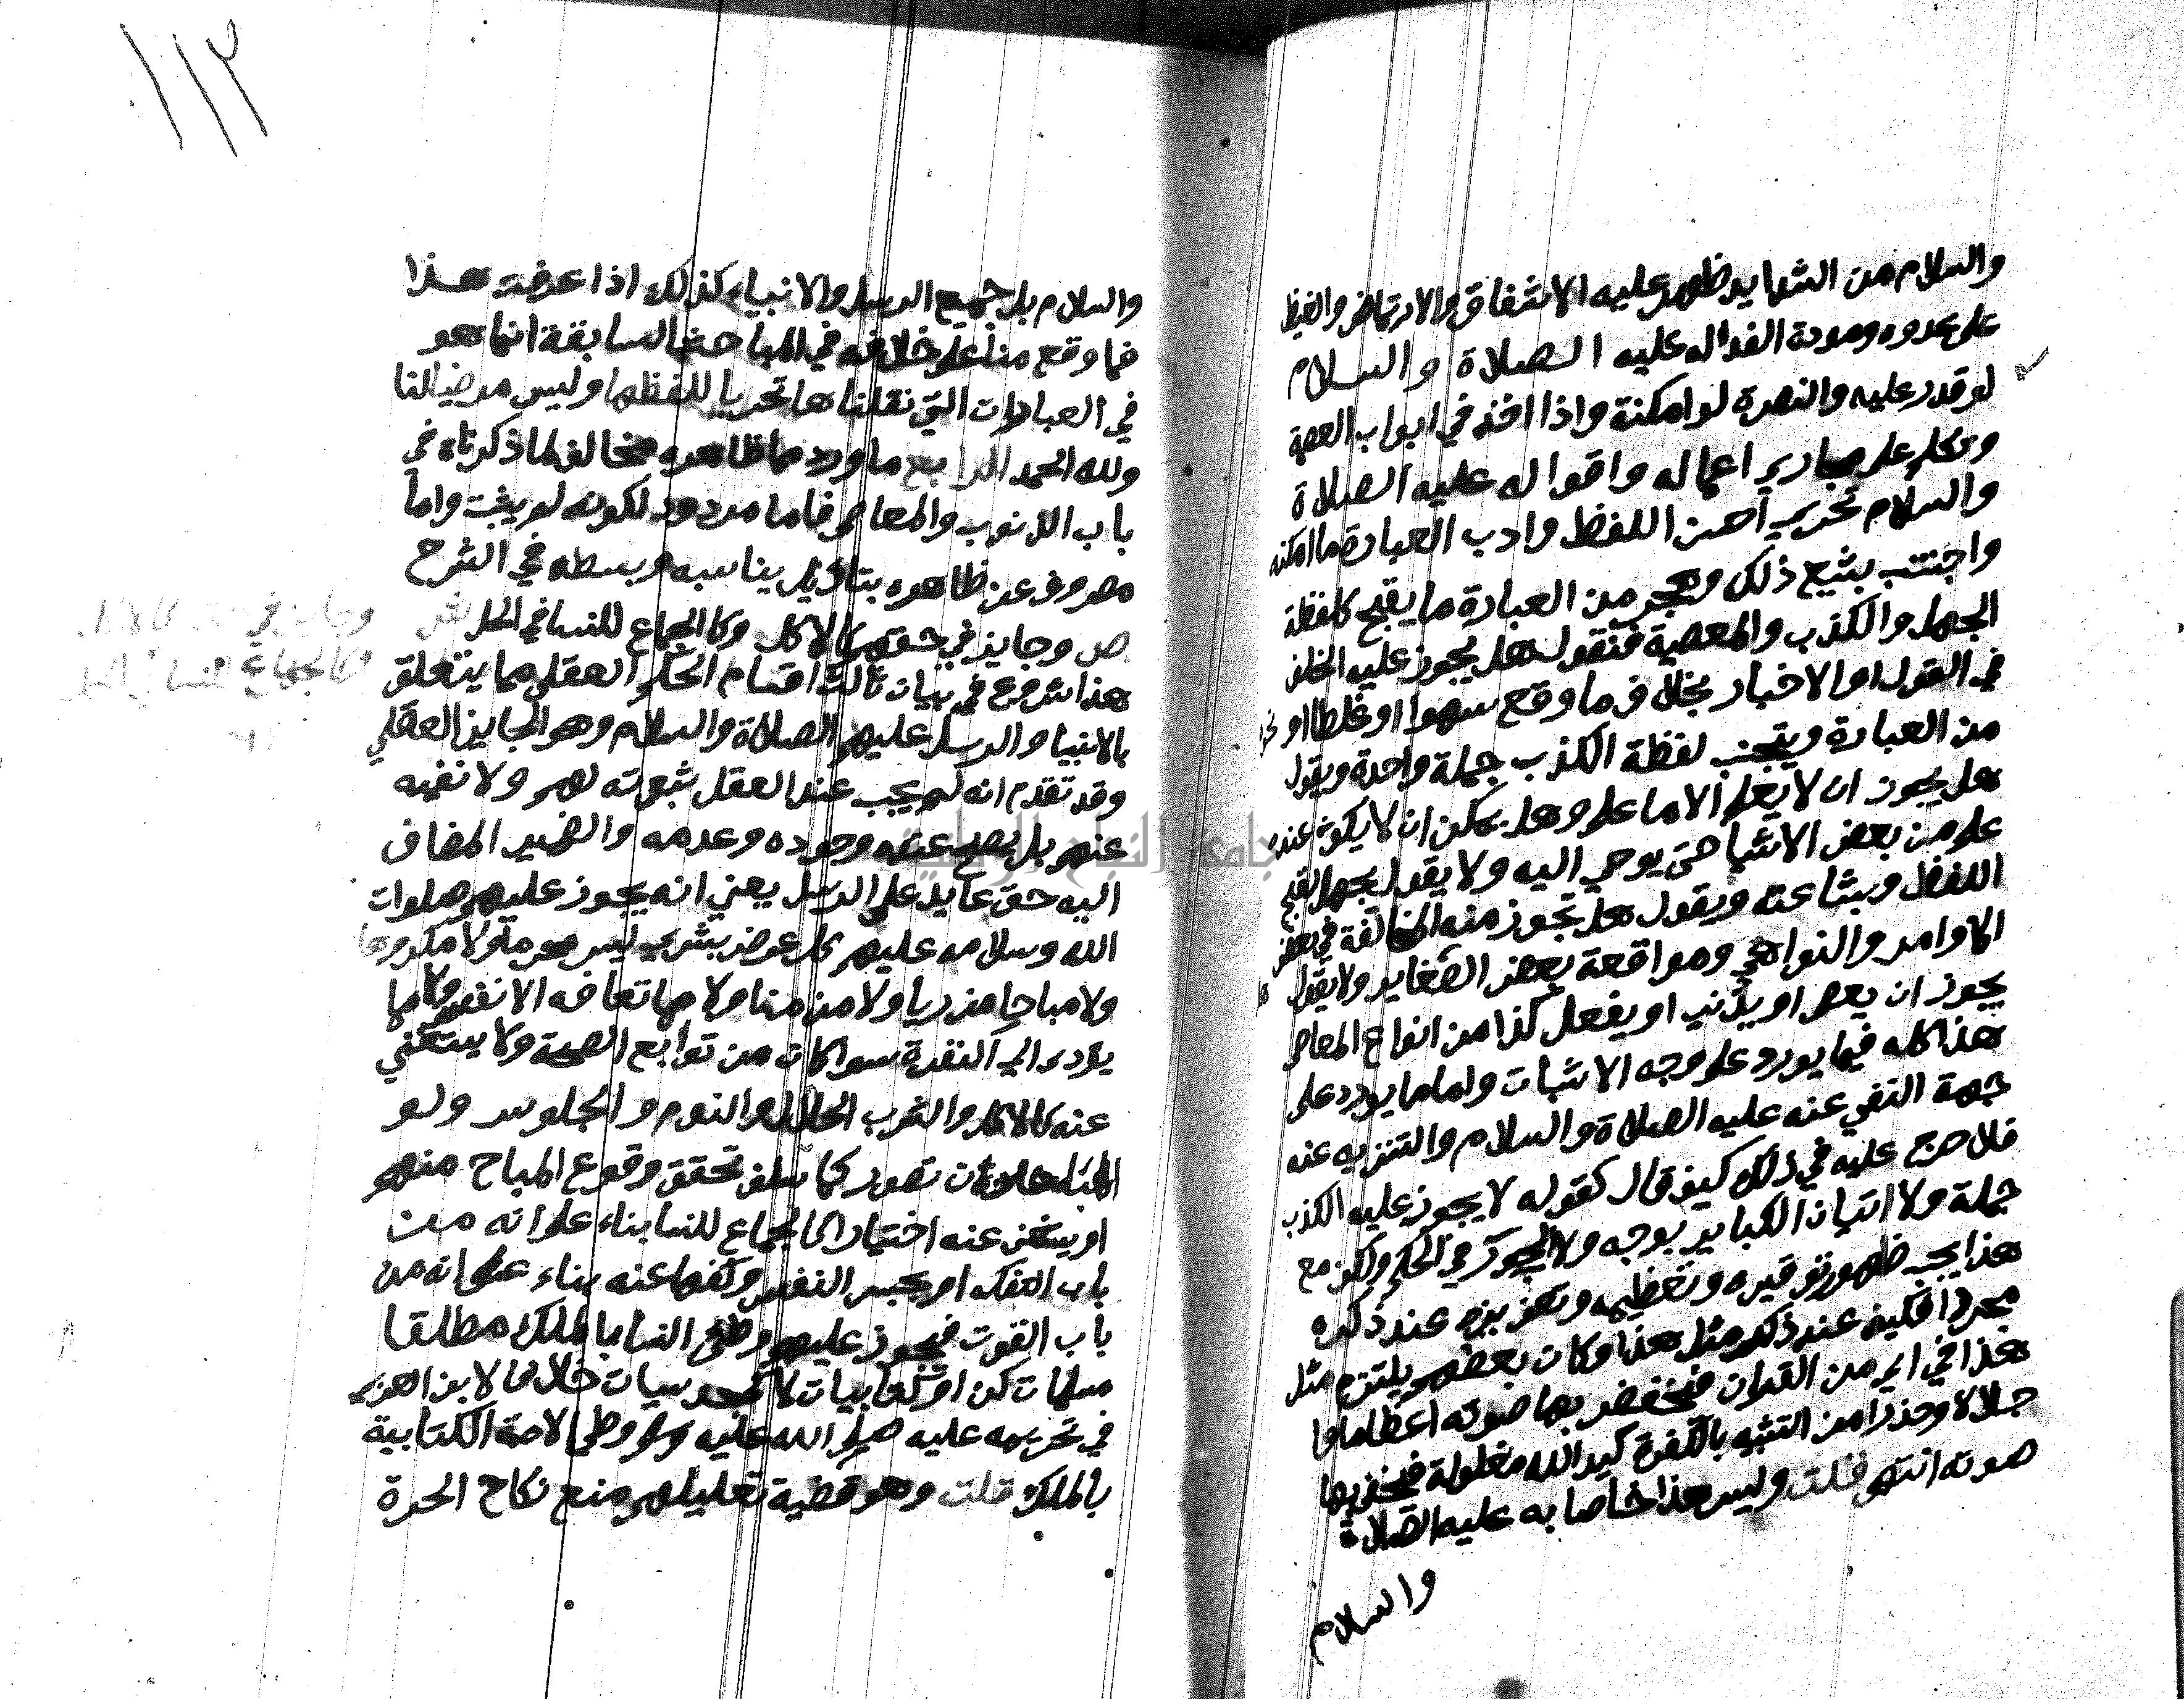 والسلام من الشدايد ظهر عليه الاشفاق والارتماض والغيظ
على عدوه ومودة الفدا له عليه الصلاة والسلام
لو قدر عليه والنصرة لو امكنة واذا اخذ في ابواب العصمة
وتكلم على مجاري اعماله واقواله عليه الصلاة
والسلام تحري احسن اللفظ وادب العبارة ما امكنه
واجتنب بشيع ذلك وهجر من العبارة ما يقبح كلفظة
الجهل والكذب والمعصية فنقول هل يجوز عليه الخلف
في القول او الاخبار بخلاف ما وقع سهوا او غلطا او نحو
من العبارة ويتجنب لفظة الكذب جملة واحدة ويقول
هل يجوز ان لا يعلم الا ما علم وهل يمكن ان لا يكون عنده
علم من بعض الاشيا حتى يوحي اليه ولا يقول بجهل لقبح
اللفظ وبشاعته ويقول هل تجوز منه المخالفة في بعض
الاوامر والنواهي ومواقعة بعض الصغاير ولا يقول هل
يجوز ان يعصي او يذنب او يفعل كذا من انواع المعاصي
هذا كله فيما يورد على وجه الاثبات واما ما يورد على
جهة النفي عنه عليه الصلاة والسلام والتنزيه عنه
فلا حرج عليه في ذلك كيف قال كقوله لا يجوز عليه الكذب
جملة ولا اتيان الكباير بوجه ولا الجور في الحكم ولكن مع
هذا يجب ظهور توقيره وتعظيمه وتعزيزه عند ذكره
مجردا فكيف عند ذكر مثل هذا وكان بعضهم يلتزم مثل
هذا في اي من القران فيخفض بها صوته اعظاما و
جلالا وحذرا من التشبه بالكفرة كيد الله مغلولة فيخفي بها
صوته انتهى قلت وليس هذا خاصا به عليه الصلاة
والسلام
١١٢
والسلام بل جميع الرسل والانبياء كذلك اذا عرفت هذا
فما وقع منا على خلافه في المباحث السابقة انما هو
في العبارات التي نقلناها تحريا للفظها وليس مرضيا لنا
ولله الحمد الرابع ما ورد مما ظاهره مخالف لما ذكرناه في
باب الذنوب والمعاصي فاما مردود لكونه لم يثبت واما
مصروف عن ظاهره بتاويل يناسبه وبسطه في الشرح
ص وجايز في حقهم كالاكل وكالجماع للنسا في الحل ش
هذا شروع في بيان ثالث اقسام الحكم العقلي مما يتعلق
بالانبيا والرسل عليهم الصلاة والسلام وهو الجايز العقلي
وقد تقدم انه لم يجب عند العقل ثبوته لهم ولا نفيه
عنهم بل يصح عنده وجوده وعدمه والضمير المضاف
اليه حق عايد على الرسل يعني انه يجوز عليهم صلوات
الله وسلامه عليهم كل عرض بشري ليس محرما ولا مكروها
ولا مباحا مزريا ولا مزمنا ولا مما تعافه الانفس ولا مما
يؤدي الى النفرة سوا كان من توابع الصحة ولا يستغني
عنه كالاكل والشرب الحلال والنوم والجلوس ولو
تصور كما سلف تحقق وقوع المباح منهم
او يستغنى عنه اختيارا كالجماع للنسا بناء على انه من
باب التفكه او بحبس النفس وكفها عنه بناء على انه من
باب القوت فيجوز عليهم وطئ النسا بالملك مطلقا
مسلمات كن او كتابيات لا مجوسيات خلافا لابن العربي
في تحريمه عليه صلى الله عليه وسلم وطئ الامة الكتابية
بالملك قلت وهو قضية تعليلهم منع نكاح الحرة